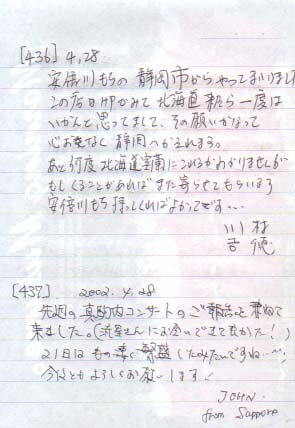 [436] 4,28
安倍川もちの静岡市からやってまいりました
この店HPがみて北海道来たら一度は
いかんと思ってまして、その願いかなって
心おきなく静岡へかえれます。
あと何度北海道室蘭にこれるかわかりませんが
もしくることがあればまた寄らせてもらいます
安倍川もち持ってくればよかったです...
川村
吉徳
[437] 2002.4.28
先週の真駒内コンサートのご報告と兼ねて
来ました。(流星さんにお会いできてよかった!)
21日はもの凄く繁盛したみたいですね〜;
今後ともよろしくお願いします!
JOHN
from Sapporo